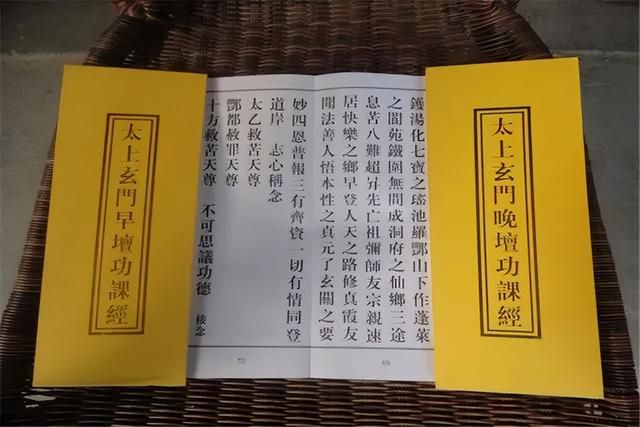 太上玄門晚壇功課經
鑊湯化七寶之瑤池羅酆山下作蓬萊
之閬苑鐵圍無間成洞府之仙鄉三途
息苦八難超昇先亡祖彌師友宗親速
居快樂之鄉早登人天之路修真霞友
聞法善人悟本性之真元了玄關之要
69
妙四恩普報三有齊資一切有情同登
道岸 志心稱念
太乙救苦天尊
酆都赦罪天尊
十方救苦天尊 不可思議功德 接念
70
太上玄門早壇功課經